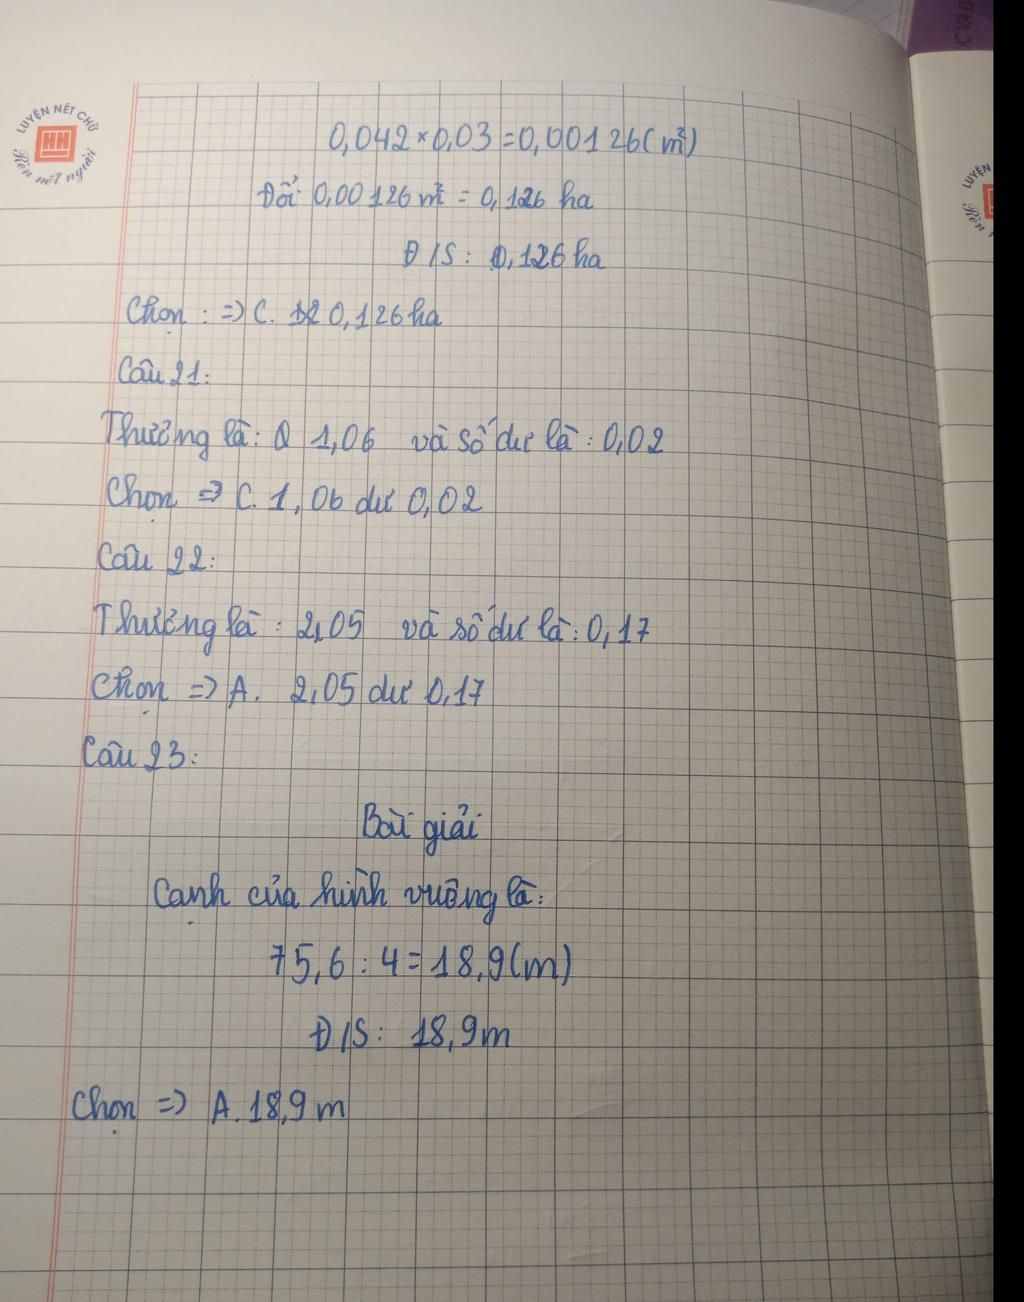 LUYỆN NÉT CHỮ
HN
Rèn nết người
0,042 × 0,03 = 0,00126 (m²)
Đổi: 0,00126 m² = 0,126 ha
Đ/S: 0,126 ha
Chọn: => C. 0,126 ha
Câu 21:
Thương là: 1,06 và số dư là: 0,02
Chọn => C. 1,06 dư 0,02
Câu 22:
Thương là: 2,05 và số dư là: 0,17
Chọn => A. 2,05 dư 0,17
Câu 23:
Bài giải
Cạnh của hình vuông là:
75,6 : 4 = 18,9 (m)
Đ/S: 18,9 m
Chọn => A. 18,9 m
LUYỆN
Rèn n